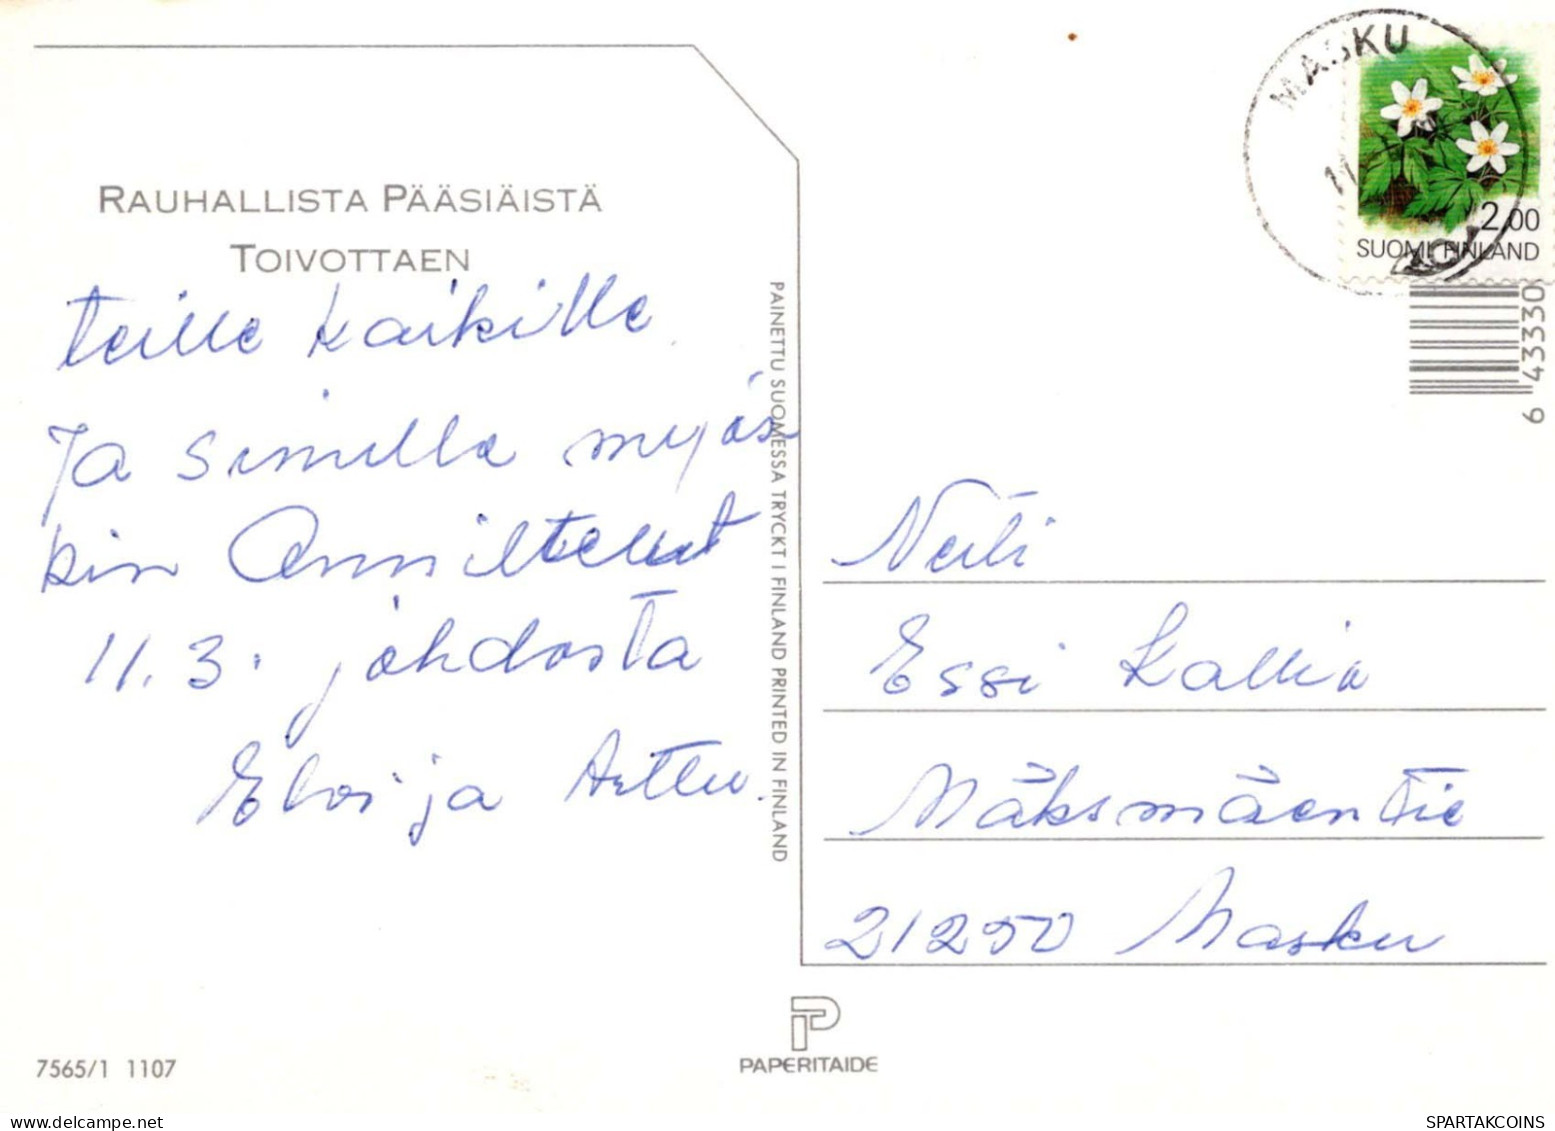 RAUHALLISTA PÄÄSIÄISTÄ
TOIVOTTAEN
teille kaikille
Ja sinulle myös
kin Onnittelut
11.3. johdosta
ja Arttu.
PAINETTU SUOMESSA TRYCKT I FINLAND PRINTED IN FINLAND
MASKU
11
2,00
SUOMI FINLAND
6 43330
Neiti
Essi Kallio
21250 Masku
PAPERITAIDE
7565/1 1107
SPARTAKCOINS